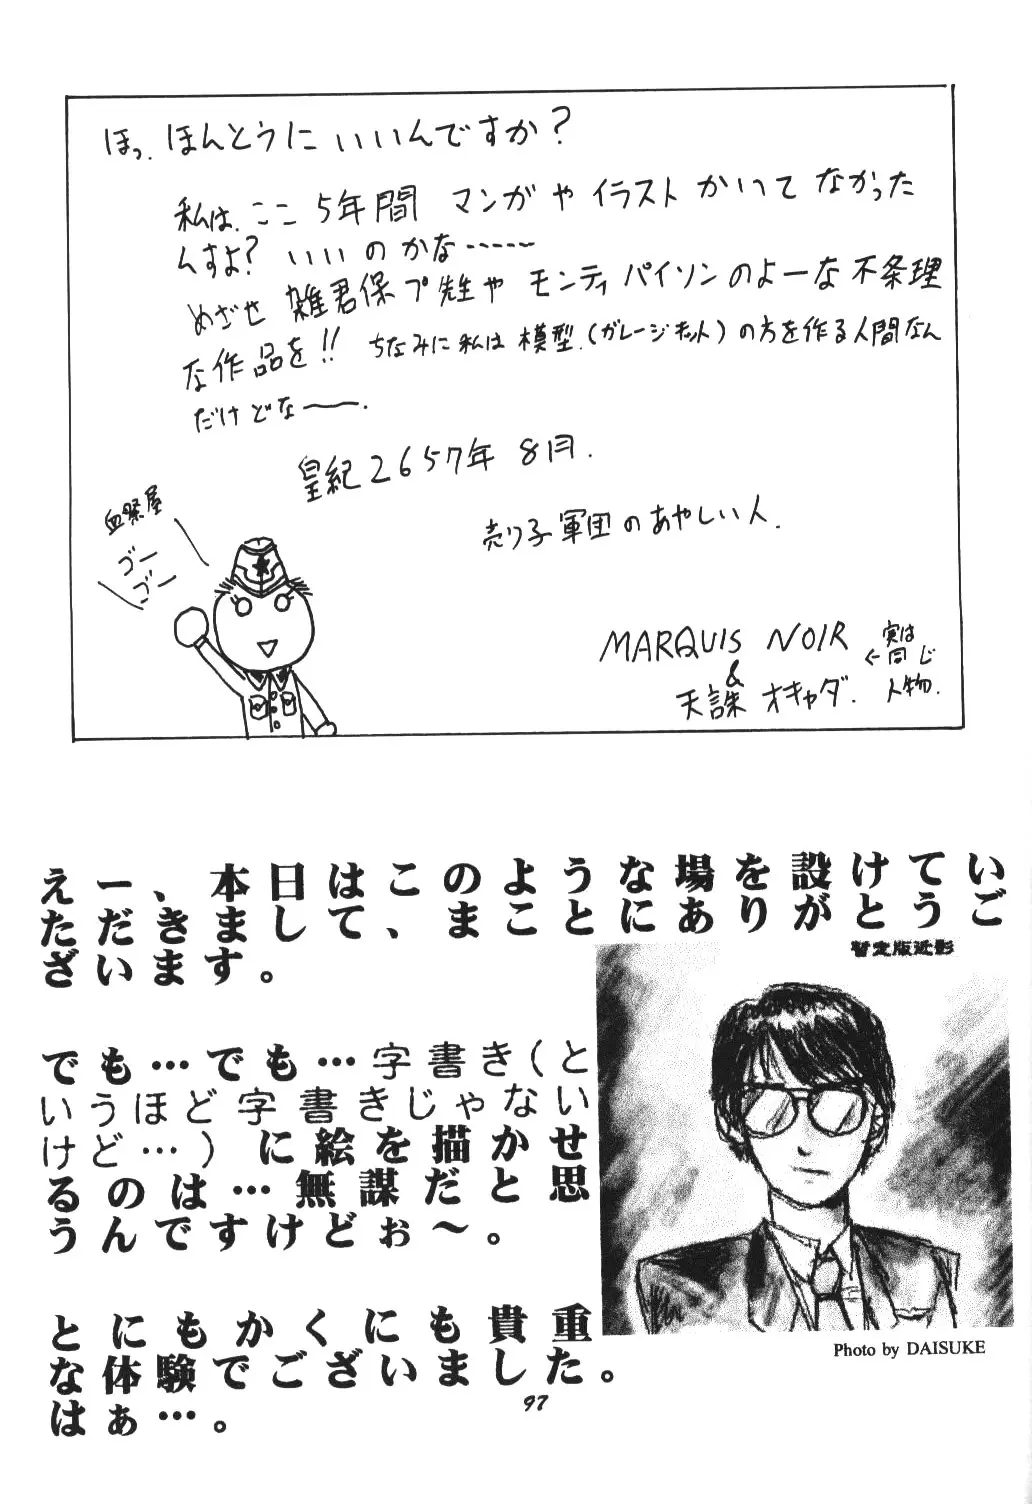 ほっ、ほんとうにいいんですか?
私は、ここ5年間 マンガやイラスト かいてなかった
んすよ? いいのかな……
めざせ 雑君保プ先生や モンティパイソンのよーな不条理
な作品を!! ちなみに私は模型(ガレージキット)の方を作る人間なん
だけどな〜.
皇紀2657年 8月.
売り子軍団のあやしい人.
血祭屋
ゴー
ゴー
MARQUIS NOIR
&
天誅 オキャダ.
実は
←同じ
人物.
えー、本日はこのような場を設けてい
ただきまして、まことにありがとうご
ざいます。
暫定版近影
でも…でも…字書き(と
いうほど字書きじゃない
けど…)に絵を描かせ
るのは…無謀だと思
うんですけどぉ〜。
とにもかくにも貴重
な体験でございました。
はぁ…。
Photo by DAISUKE
97